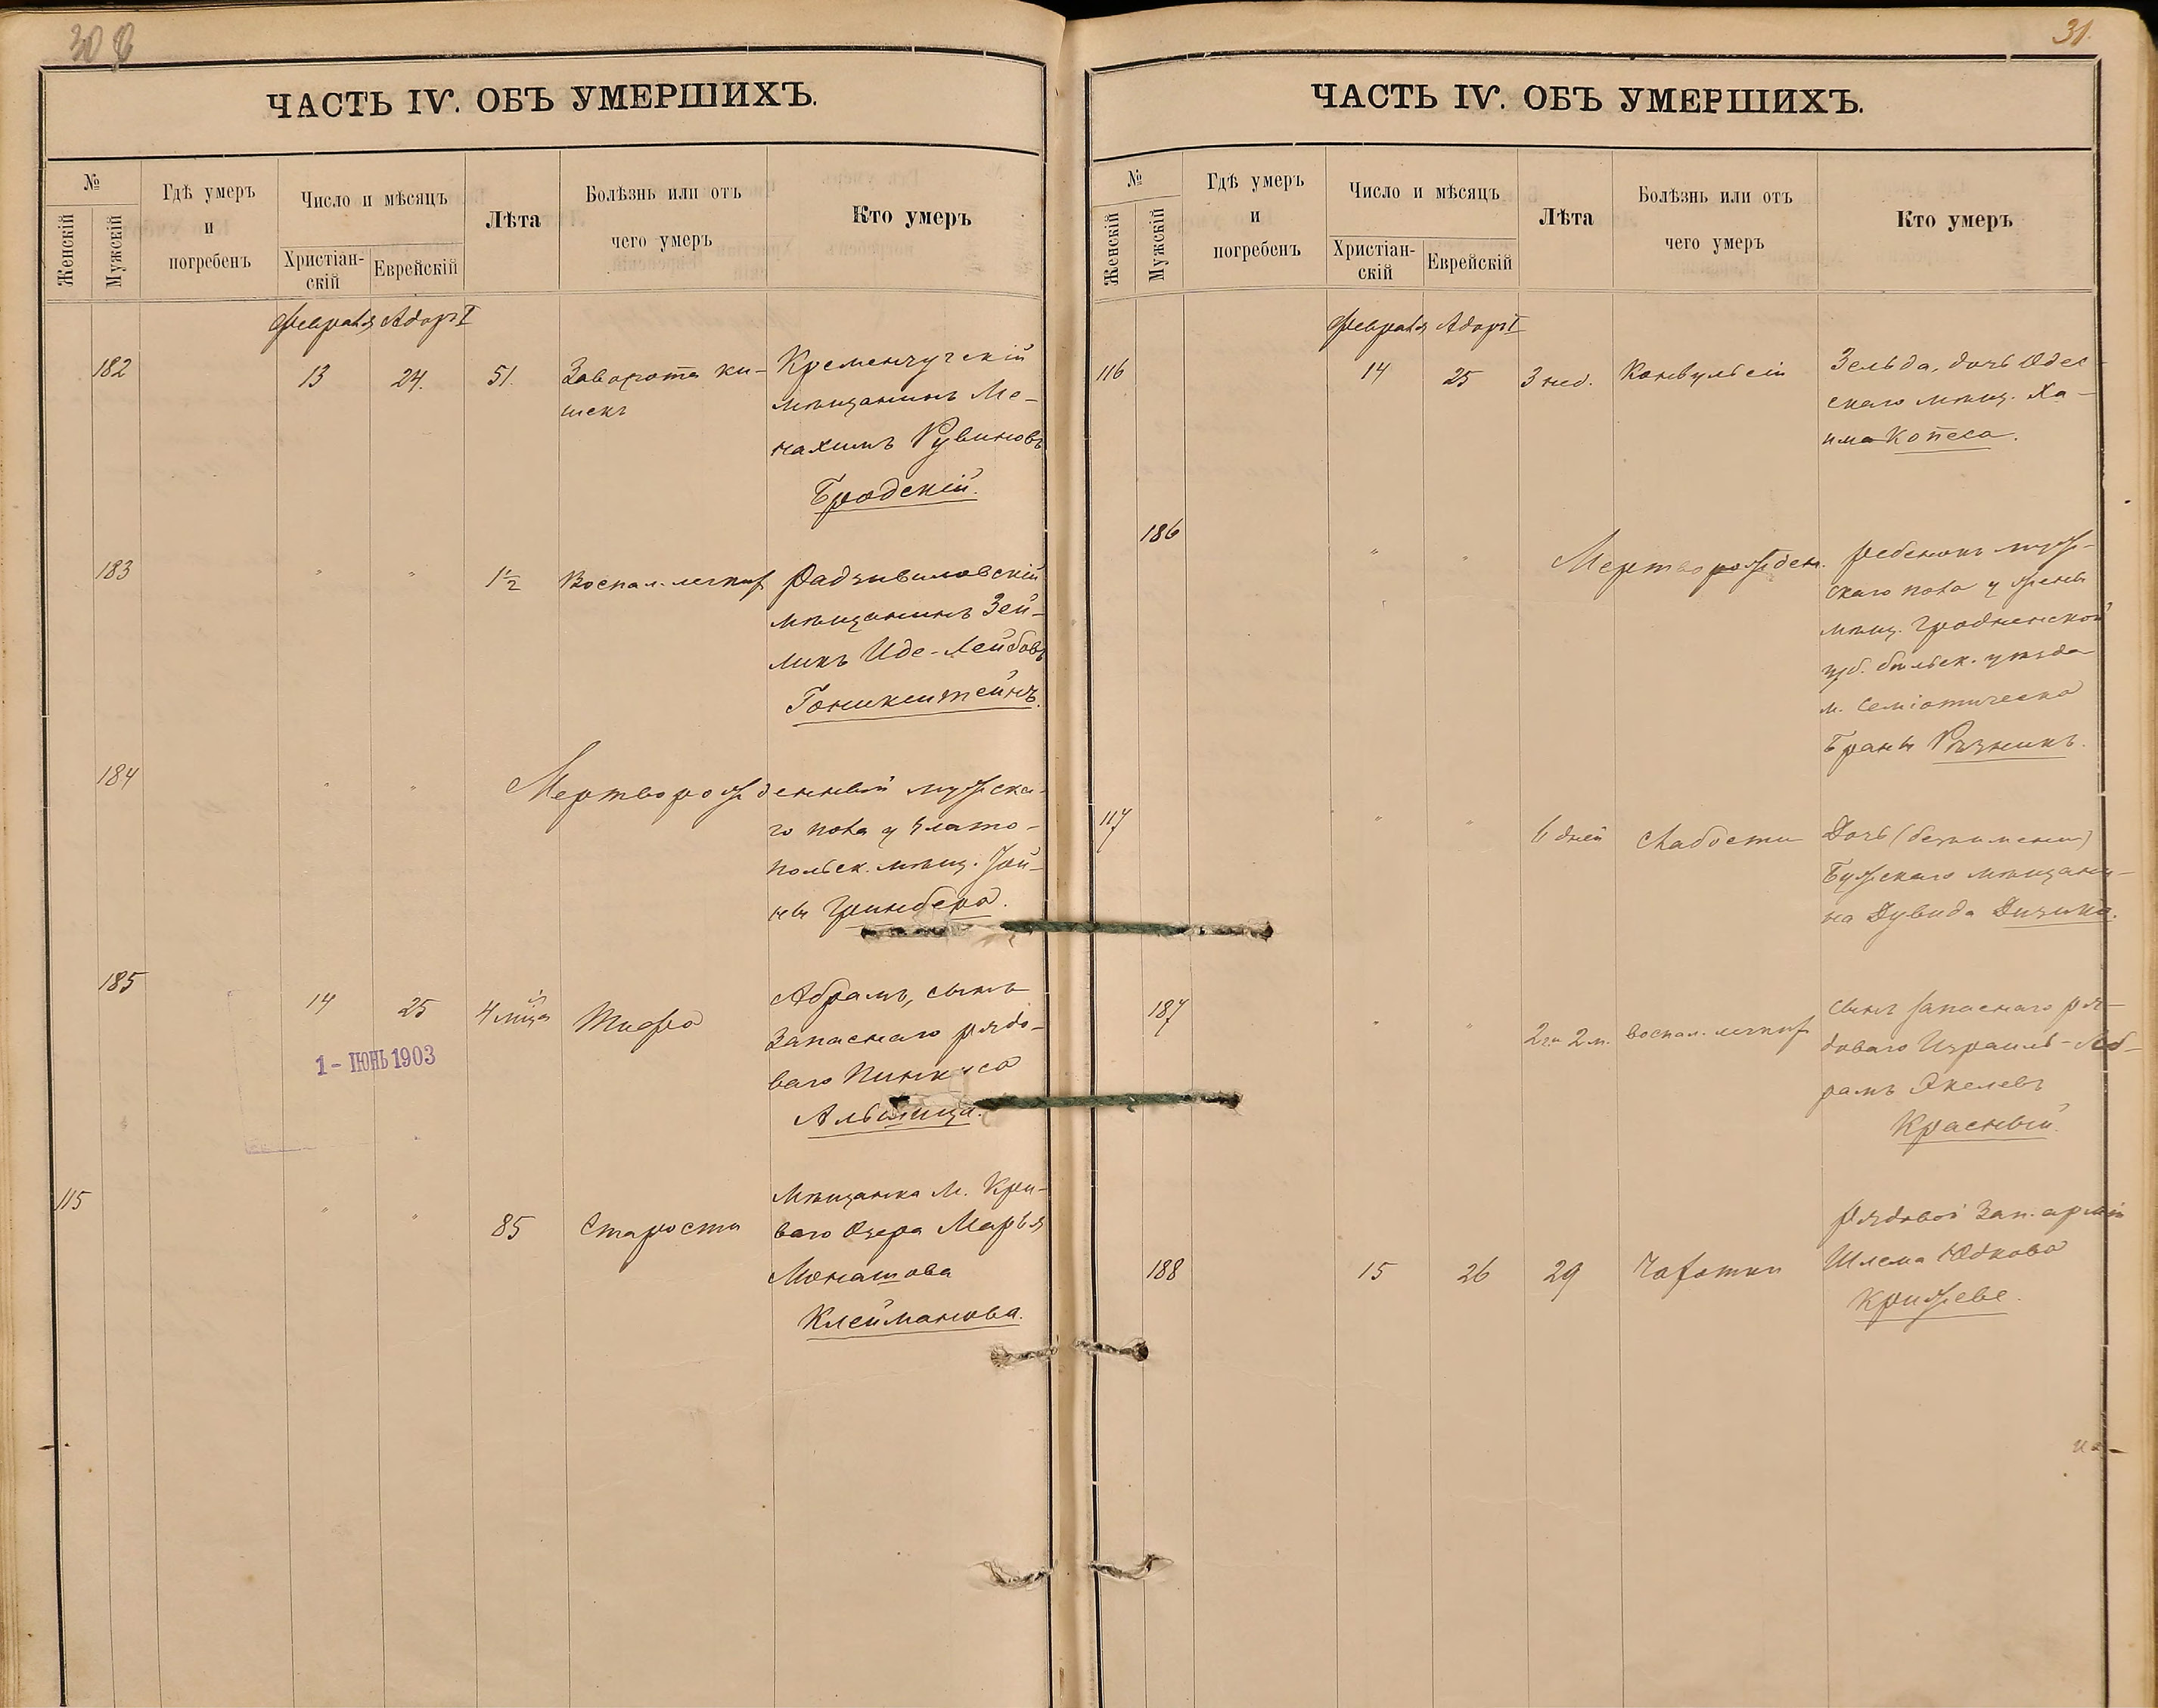 30
ЧАСТЬ IV. ОБЪ УМЕРШИХЪ.
№
Женскій
Мужскій
Гдѣ умеръ
и
погребенъ
Число и мѣсяцъ
Христіан-
скій
Еврейскій
Лѣта
Болѣзнь или отъ
чего умеръ
Кто умеръ
Февраля Адоръ I
182
13
24.
51.
Заворота ки-
шекъ
Кременчугскій
мѣщанинъ Ме-
нахимъ Рувиновъ
Бродскій.
183
"
"
1 1/2
Воспал. легких
Радзивиловскій
мѣщанинъ Зей-
ликъ Иде-Лейбовъ
184
"
"
Мертворожденный мужска-
го пола у Злато-
польск. мѣщ. Іой-
ны Гринберга.
185
14
25
4 мѣс.
Тифа
Абрамъ, сынъ
Запаснаго рядо-
ваго Пинкуса
Альшица.
1 - ІЮНЬ 1903
115
"
"
85
Старости
Мѣщанка м. Кри-
ваго Озера Марья
Монашова
Клейманова.
31.
ЧАСТЬ IV. ОБЪ УМЕРШИХЪ.
№
Женскій
Мужскій
Гдѣ умеръ
и
погребенъ
Число и мѣсяцъ
Христіан-
скій
Еврейскій
Лѣта
Болѣзнь или отъ
чего умеръ
Кто умеръ
Февраля Адоръ I
116
14
25
3 нед.
Конвульсіи
Зельда, дочь Одес-
скаго мѣщ. Ха-
има Копеса.
186
"
"
Мертворожден.
ребенокъ муж-
скаго пола у жены
мѣщ. Гродненской
губ. бѣльск. уѣзда
м. Семіотическа
Браны Рѣзникъ.
117
"
"
6 дней
Слабости
Дочь (безъимени)
мѣщани-
на Дувида
187
"
"
2 г. 2 м.
воспал. легких
Сынъ запаснаго ря-
доваго Израиль-Аб-
рамъ Якелевъ
Красный.
188
15
26
29
Чахотки
Рядовой Зап. арміи
Шлема Юдкова
Крижеве.